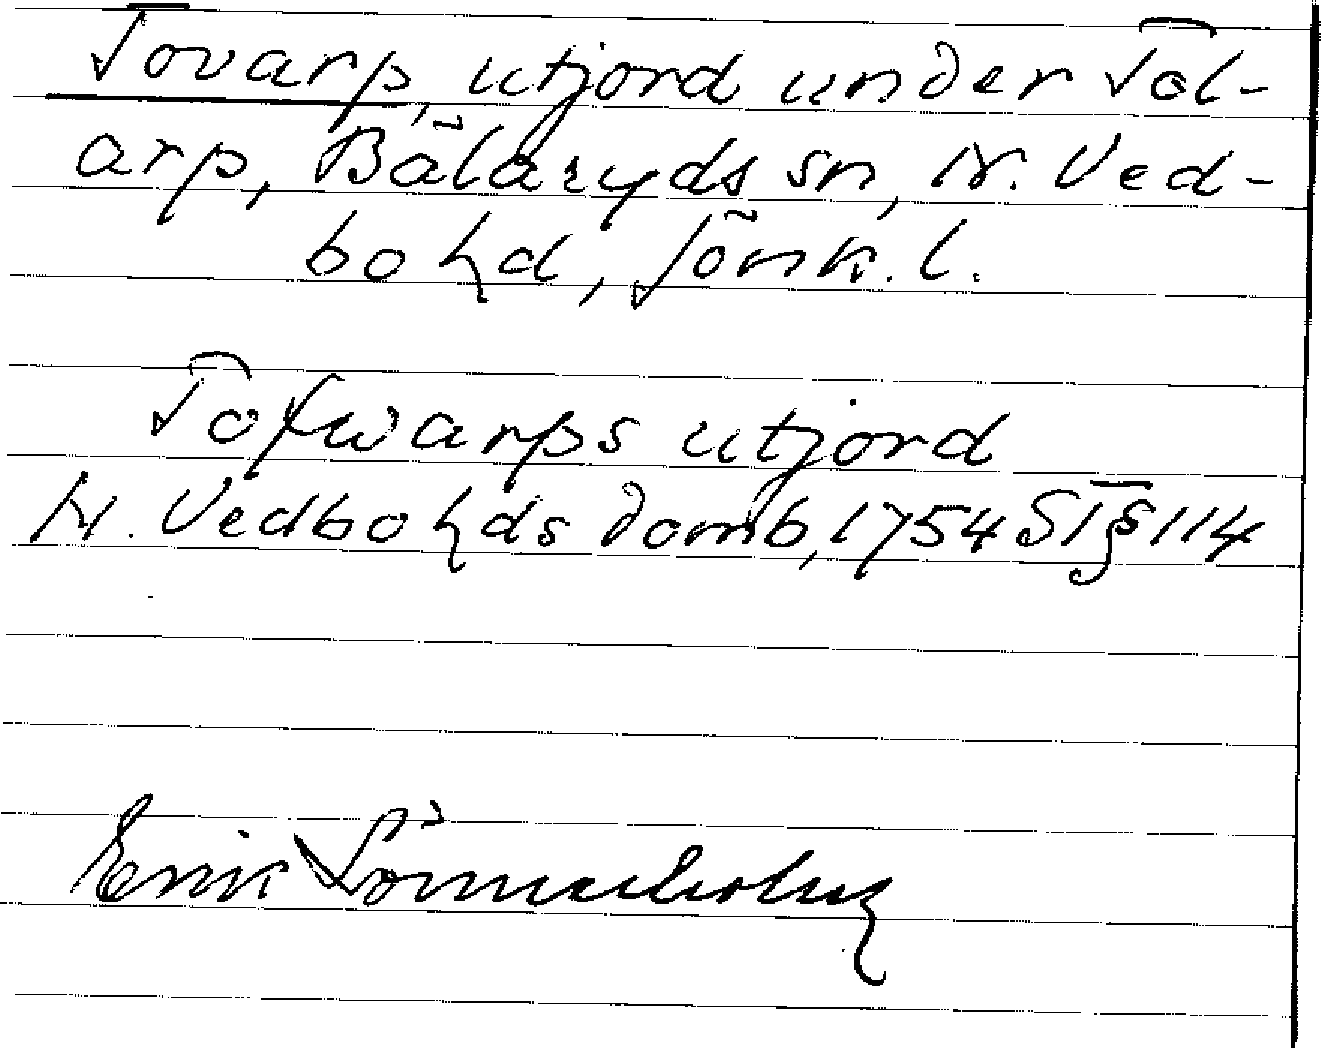 Tovarp, utjord under Tol-
arp, Bälaryds sn, N. Ved-
bo hd, Jönk. l.
Tofwarps utjord
N. Vedbo hds domb, 1754 ST § 114
Erik